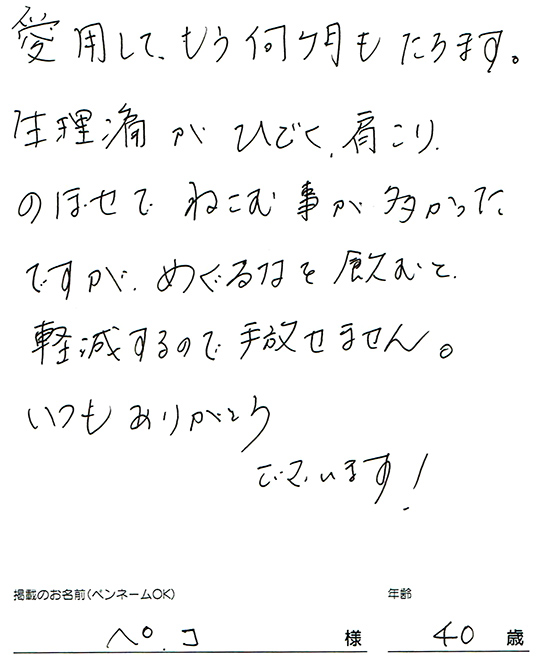 愛用して、もう何ヶ月もたちます。
生理痛がひどく、肩こり、
のぼせでねこむ事が多かった
ですが、めぐるなを飲むと、
軽減するので手放せません。
いつもありがとう
ございます!
掲載のお名前(ペンネームOK) 年齢
ペコ 様 40 歳